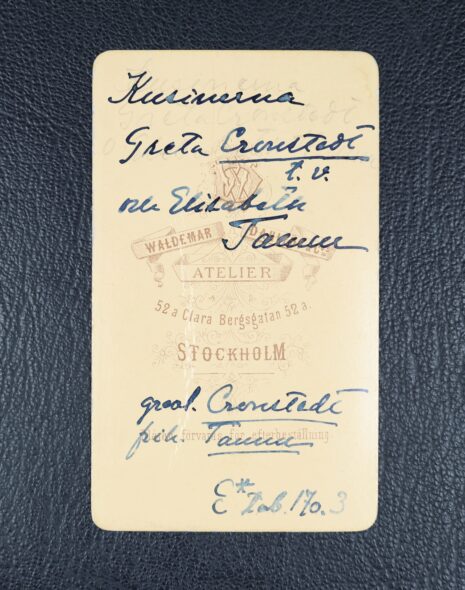 Kusinerna
Greta Cronstedt
t.v.
och Elisabeth
Tamm
WALDEMAR DAHL & Co
ATELIER
52 a Clara Bergsgatan 52 a.
STOCKHOLM
grevl. Cronstedt
förvaras för efterbeställning
frih. Tamm
E* Tab. 170. 3